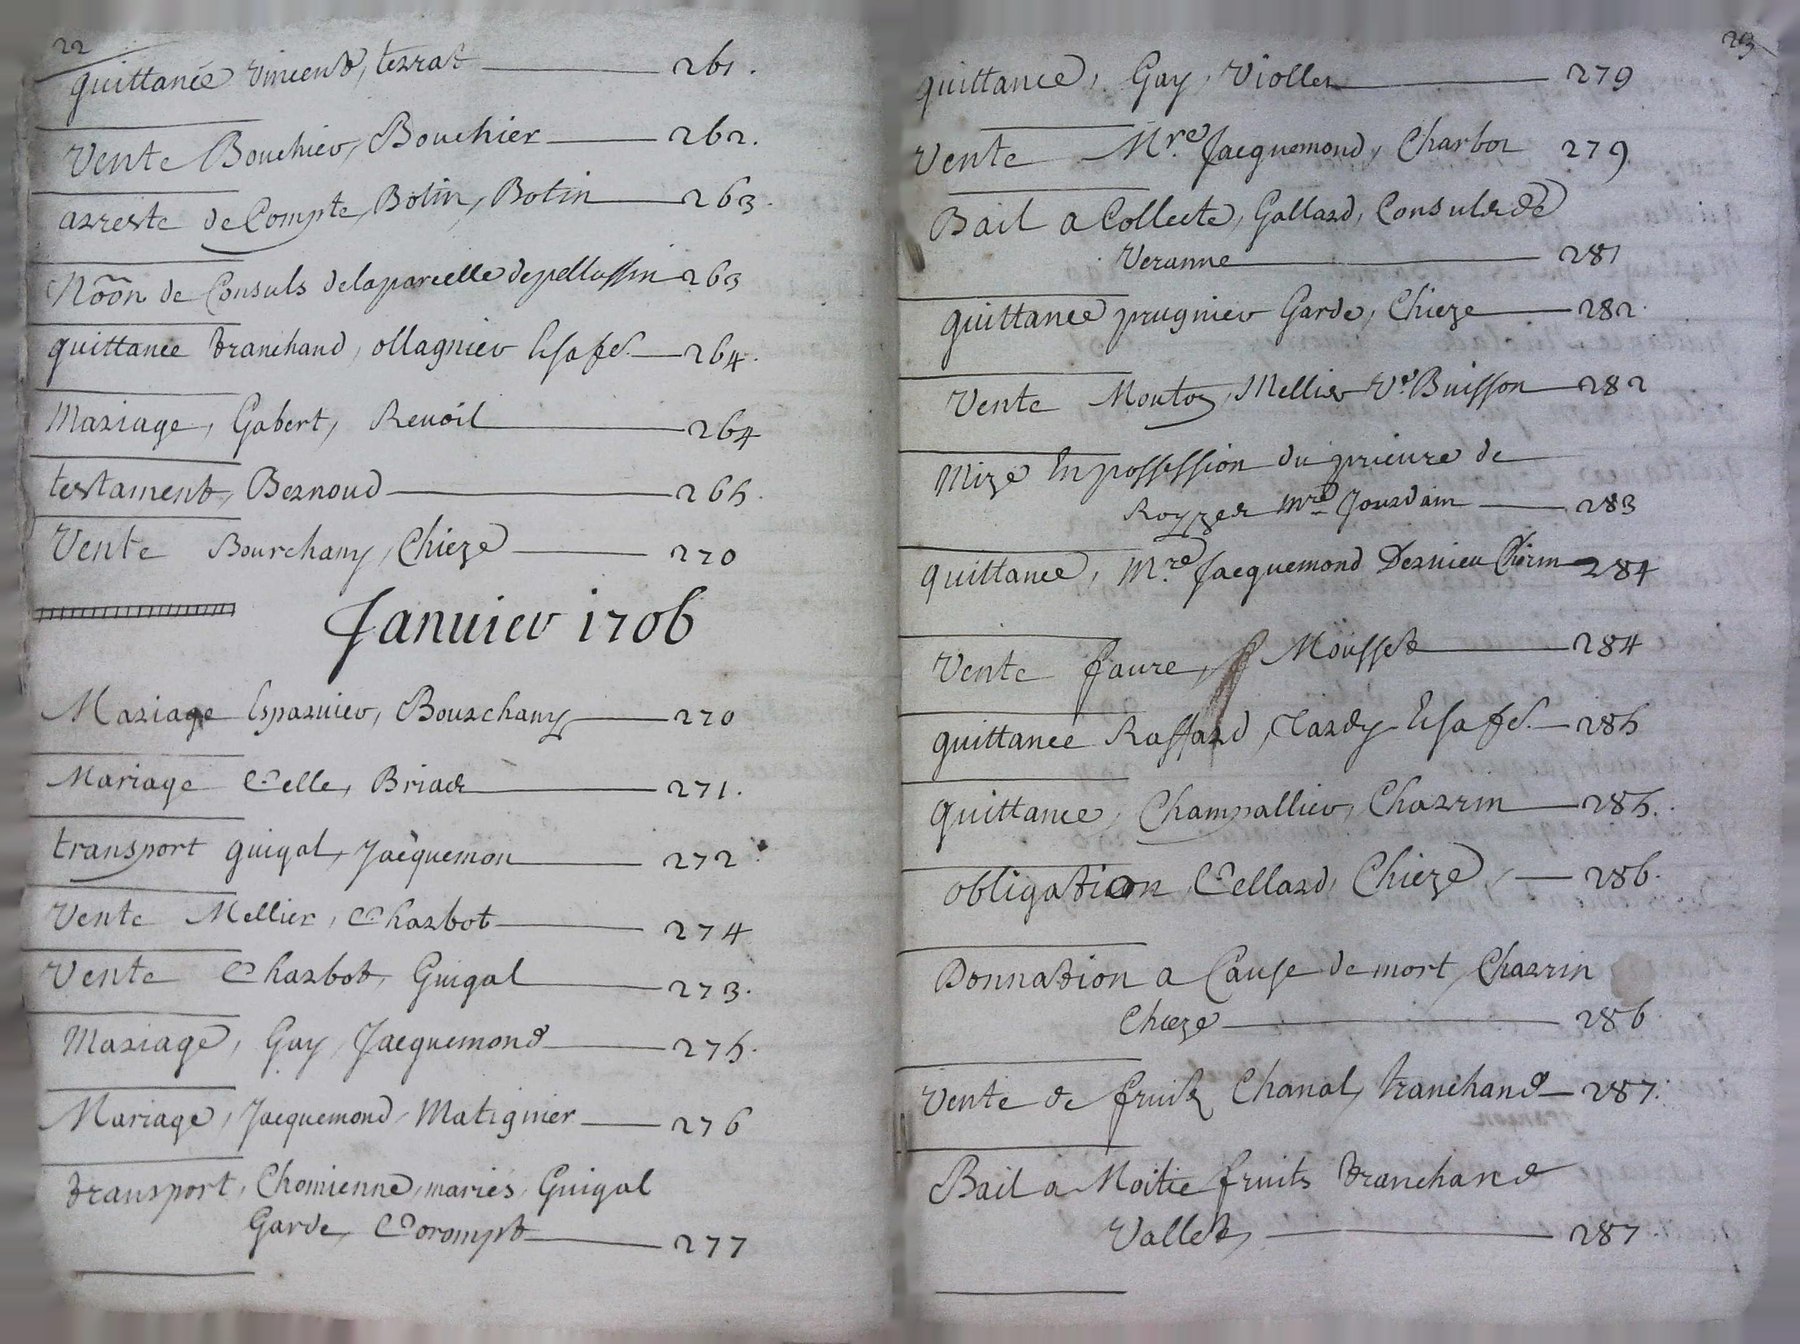 22
quittance vincent, terrat 261.
Vente Bouchier, Bouchier 262.
arreste de Compte, Botin, Botin 263.
Nõõn de Consuls de la parcelle de pellussin 263
quittance tranchand, ollagnier Esafs. 264.
Mariage, Gabert, Revoil 264
testament, Bernoud 265.
Vente Bourchany, Chieze 270
Janvier 1706
Mariage Esparvier, Bourchany 270
Mariage Celle, Briade 271.
transport guigal, Jacquemon 272
Vente Mellier, Charbot 274
Vente Charbot, Guigal 273.
Mariage, Guy, Jacquemond 275.
Mariage, Jacquemond, Matignier 276
transport, Chomienne, mariés, Guigal
Garde, Corompt 277
23
quittance, Guy, Viollet 279
Vente Mre. Jacquemond, Charbot 279
Bail a Collecte, Gallard, Consul de
Veranne 281
quittance prugnier Garde, Chieze 282.
Vente Moutoz, Mellier Ve. Buisson 282
Mize En possession du prieure de
Royzes Mre Jourdain 283
quittance, Mre. Jacquemond Dervieu Cherin 284
Vente faure, Mousset 284
quittance Raffard, Tardy Esafs. 285
quittance, Champallier, Charrin 285.
obligation, Cellard, Chieze, 286.
Donnation a Cause de mort, Charrin
Chieze 286
Vente de fruits Chanal, tranchand 287.
Bail a Moitie fruits tranchand
Vallet, 287